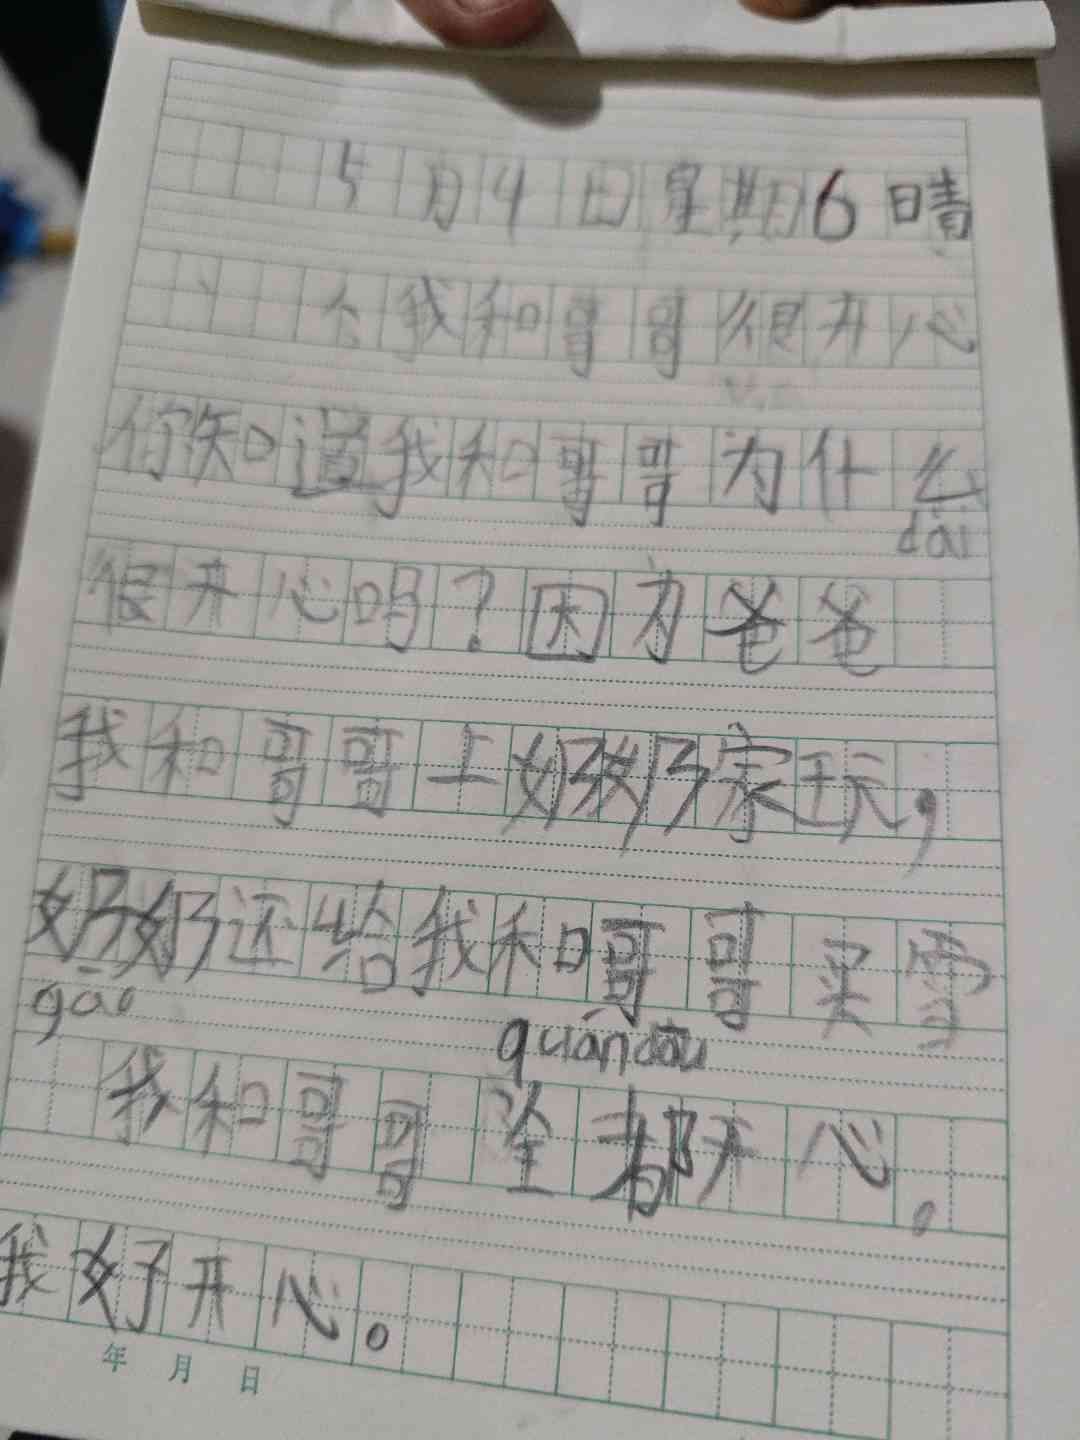 5月4日星期6晴
个我和哥哥很开心
你知道我和哥哥为什么
dai
很开心吗？因为爸爸
我和哥哥上奶奶家玩，
奶奶还给我和哥哥买雪
gāo
quandou
我和哥哥 全都开心。
我好开心。
年 月 日